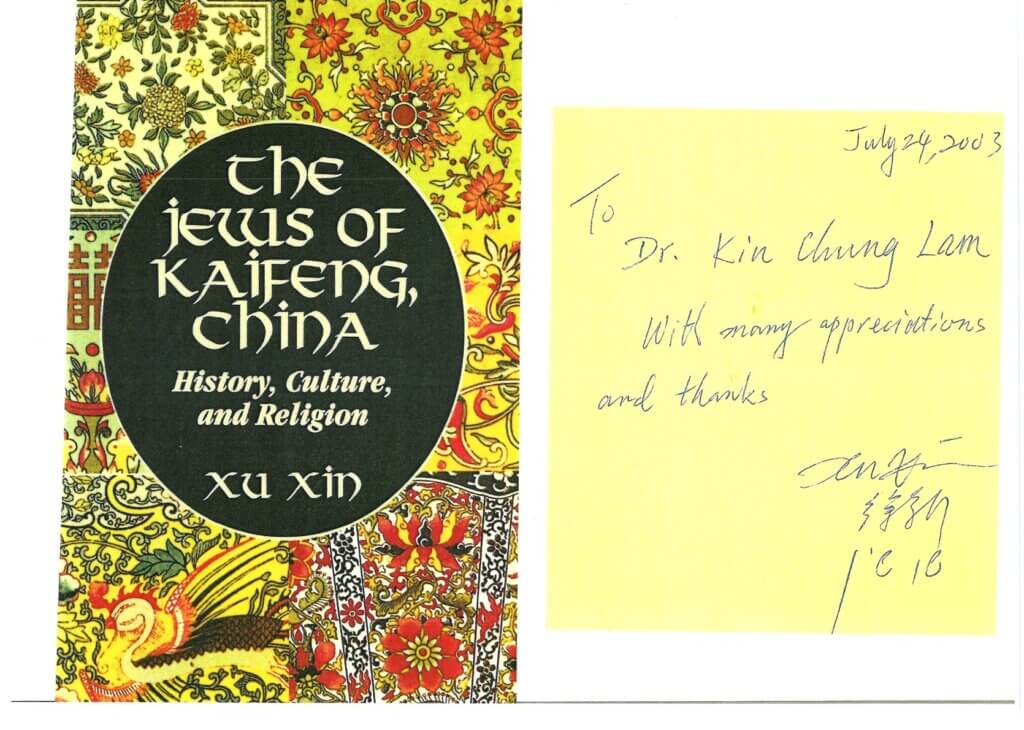 THE
JEWS OF
KAIFENG,
CHINA
History, Culture,
and Religion
XU XIN
July 24, 2003
To
Dr. Kin Chung Lam
With many appreciations
and thanks
Xu Xin
徐新
שו שין